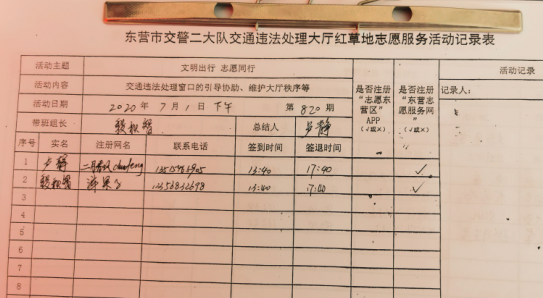 东营市交警二大队交通违法处理大厅红草地志愿服务活动记录表
活动主题 文明出行 志愿同行
活动内容 交通违法处理窗口的引导协助、维护大厅秩序等
活动日期 2020年7月1日下午 第820期
带班组长 总结人 步静
是否注册“志愿东营区”APP(√或×)
是否注册“东营志愿服务网”(√或×)
活动记录
记录人:
序号 实名 注册网名 联系电话 签到时间 签退时间
1 步静 13:40 17:40 √
2 13:40 17:00 √
3
4
5
6
7
8